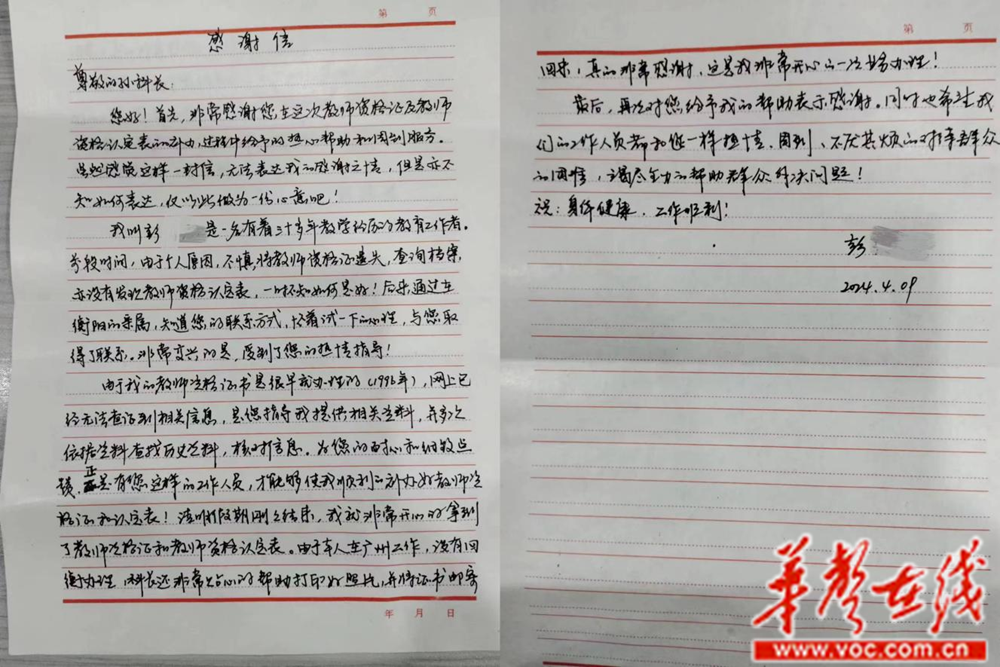 第 页
感谢信
尊敬的孙科长:
您好!首先,非常感谢您在这次教师资格证及教师
资格认定表的补办过程中给予的热心帮助和周到服务。
虽然感觉这样一封信,无法表达我的感谢之情,但是亦不
知如何表达,仅以此做为一份心意吧!
我叫彭 是一名有着三十多年教学经历的教育工作者。
前段时间,由于个人原因,不慎将教师资格证遗失,查询档案,
亦没有发现教师资格认定表,一时不知如何是好!后来通过在
衡阳的亲属,知道您的联系方式,怀着试一下的心理,与您取
得了联系。非常高兴的是,受到了您的热情指导!
由于我的教师资格证书是很早前办理的(1996年),网上已
经无法查证到相关信息,是您指导我提供相关资料,并多次
依据资料查找历史资料,核对信息。为您的耐心和细致点
赞,正是有您这样的工作人员,才能够使我顺利的补办好教师资
格证和认定表!清明假期刚刚结束,我就非常开心的拿到
了教师资格证和教师资格认定表。由于本人在广州工作,没有回
衡办理,科长还非常贴心的帮助打印好照片,并将证书邮寄
年 月 日
第 页
回来,真的非常感谢,这是我非常开心的一次业务办理!
最后,再次对您给予我的帮助表示感谢。同时也希望我
们的工作人员都和您一样热情、周到、不厌其烦的对待群众
的困难,竭尽全力的帮助群众解决问题!
祝:身体健康,工作顺利!
彭
2024.4.09
华声在线
www.voc.com.cn